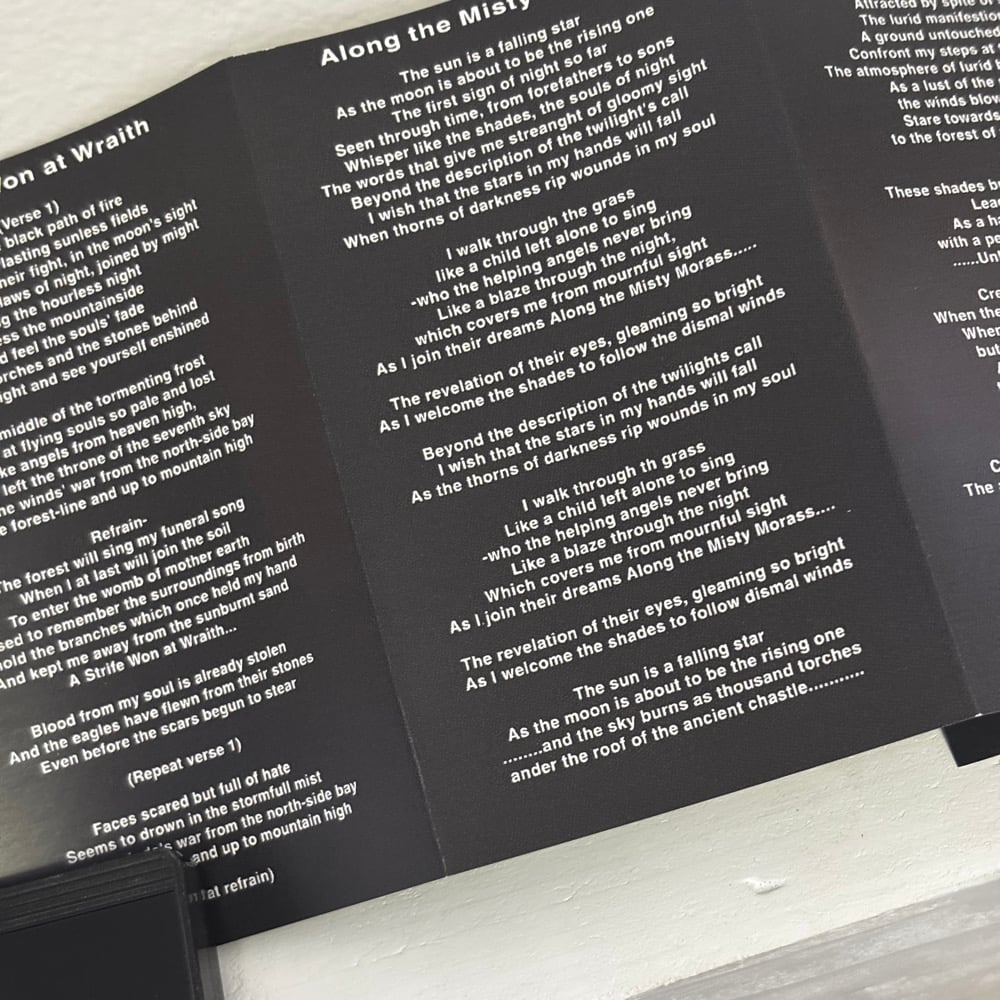 on at Wraith
(Verse 1)
black path of fire
lasting sunless fields
their fight, in the moon's sight
laws of night, joined by might
the hourless night
the mountainside
feel the souls' fade
torches and the stones behind
and see yourself enshined
middle of the tormenting frost
at flying souls so pale and lost
angels from heaven high,
left the throne of the seventh sky
winds' war from the north-side bay
forest-line and up to mountain high
Refrain-
The forest will sing my funeral song
When I at last will join the soil
To enter the womb of mother earth
to remember the surroundings from birth
the branches which once held my hand
And kept me away from the sunburnt sand
A Strife Won at Wraith...
Blood from my soul is already stolen
And the eagles have flewn from their stones
Even before the scars begun to stear
(Repeat verse 1)
Faces scared but full of hate
Seems to drown in the stormfull mist
war from the north-side bay
and up to mountain high
refrain)
Along the Misty
The sun is a falling star
As the moon is about to be the rising one
The first sign of night so far
Seen through time, from forefathers to sons
Whisper like the shades, the souls of night
The words that give me streanght of gloomy sight
Beyond the description of the twilight's call
I wish that the stars in my hands will fall
When thorns of darkness rip wounds in my soul
I walk through the grass
like a child left alone to sing
-who the helping angels never bring
Like a blaze through the night,
which covers me from mournful sight
As I join their dreams Along the Misty Morass.....
The revelation of their eyes, gleaming so bright
As I welcome the shades to follow the dismal winds
Beyond the description of the twilights call
I wish that the stars in my hands will fall
As the thorns of darkness rip wounds in my soul
I walk through th grass
Like a child left alone to sing
-who the helping angels never bring
Like a blaze through the night
Which covers me from mournful sight
As I join their dreams Along the Misty Morass....
The revelation of their eyes, gleaming so bright
As I welcome the shades to follow dismal winds
The sun is a falling star
As the moon is about to be the rising one
........and the sky burns as thousand torches
ander the roof of the ancient chastle...........
Attracted by spite of
The lurid
A ground untouched
Confront my steps at
The atmosphere of lurid
As a lust of the
the winds
Stare towards
to the forest of
These shades
As a
with a
When the
but
The